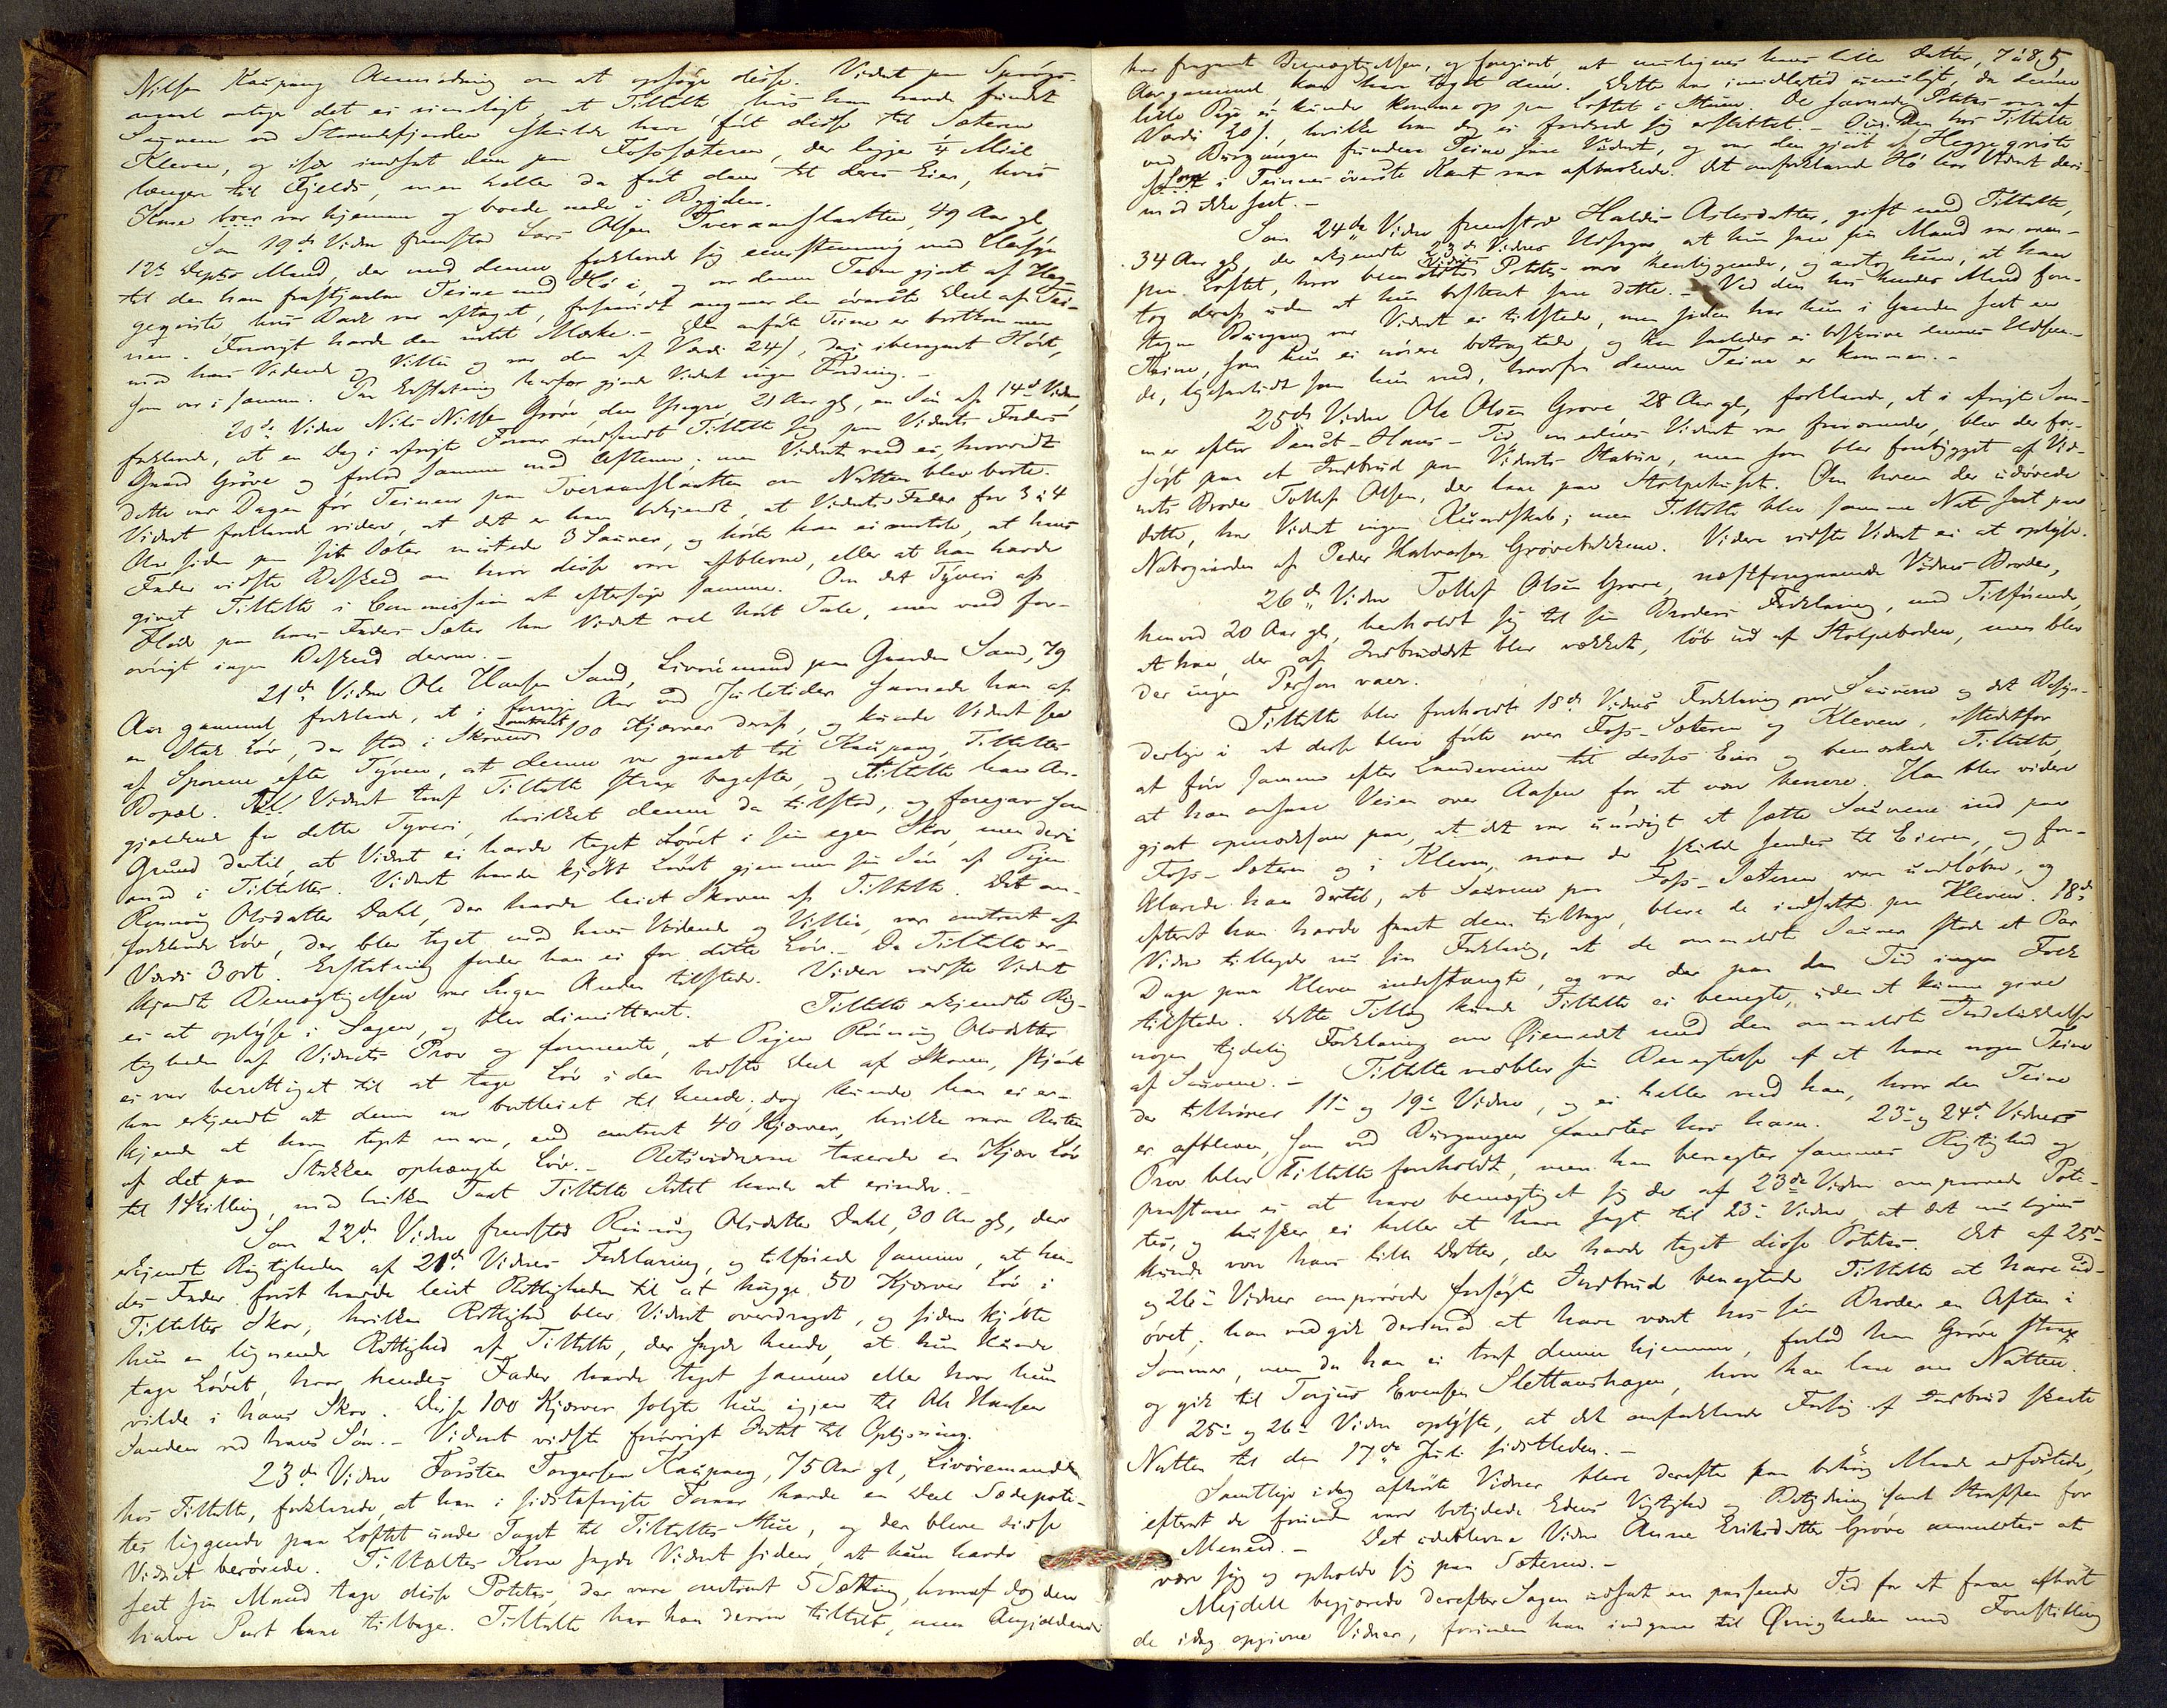 Nilsen Kaupang Anmodning om at opsøge disse. Vidnet paa Spørgs-
maal antog det ei rimeligt, at Tiltalte, hvis han havde fundet
Sauerne ved Strandefjorden skulde have ført disse til Sæteren
Kleven, og især indsat dem paa Fossæteren, der ligger 1/4 Miil
længere til Fjelds, men heller da ført dem til deres Eier, hvis
Kone var hjemme og boede nede i Bygden.
Som 19de Vidne fremstod Lars Olsen Tveraaslaatten, 49 Aar gl,
12te Deptes Mand, der med denne forklarede sig eensstemmig med Hensyn
til den ham frastjaalne Teine med Hø i, og var denne Teine gjort af Heg-
gegreiste, hvis Bark var aftaget, forsaavidt angaaer den øverste Deel af Tei-
nen. Forøvrigt havde den intet Mærke. - Den anførte Teine er bortkommen
mod hans Vidende og Villie og var den af Værdi 24 s, deri iberegnet Høet,
som var i samme. Paa Erstatning herfor gjorde Vidnet ingen Fordring. -
20de Vidne Nils Nilsen Grøve, den Yngre, 21 Aar gl, en Søn af 14de Vidne
forklarede, at en Dag i afvigte Foraar indfandt Tiltalte sig paa Vidnets Faders
Gaard Grøve og forlod samme mod Aftenen; men Vidnet veed ei, hvorvidt
dette var Dagen før Teinen paa Tveraaslaatten om Natten blev borte.
Vidnet forklarede videre, at det er ham bekjendt, at Vidnets Fader for 3 à 4
Aar siden paa sit Sæter mistede 3 Sauer, og hørte han ei rettere, at hans
Fader vidste Besked om hvor disse vare afblevne, eller at han havde
givet Tiltalte i Commission at eftersøge samme. Om det Tyveri af
Fløde paa hans Faders Sæter har Vidnet vel hørt Tale, men veed for-
øvrigt ingen Besked derom. -
21de Vidne Ole Hansen Sand, Livøremand paa Gaarden Sand, 79
Aar gammel forklarede, at i forrige Aar ved Juletider savnede han af
en Stak Løv, der stod i Skoven omtrent 100 Kjærver deraf, og kunde Vidnet see
af Sporene efter Tyven, at denne var gaaet til Kaupang, Tiltaltes
Bopæl. Vidnet traf Tiltalte strax bagefter, og tiltalte ham An-
gjældende for dette Tyveri, hvilket denne da tilstod, og foregav som
Grund dertil, at Vidnet ei havde taget Løvet i sin egen Skov, men deri-
mod i Tiltaltes. Vidnet havde kjøbt Løvet gjennem sin Søn af Pigen
Rønnoug Olsdatter Dahl, der havde leiet Skoven af Tiltalte. Det om-
forklarede Løv, der blev taget mod hans Vidende og Villie, var omtrent af
Værdi 3 ort. Erstatning fordrer han ei for dette Løv. - Da Tiltalte er-
kjendte Bemægtigelsen var Ingen Anden tilstede. Videre vidste Vidnet
ei at oplyse i Sagen, og blev dimitteret. Tiltalte erkjendte Rig-
tigheden af Vidnets Prov og formeente, at Pigen Rønnoug Olsdatter
ei var berettiget til at tage Løv i den bedste Deel af Skoven, skjønt
han erkjendte at denne var bortleiet til hende; dog kunde han ei er-
kjende at have taget mere, end omtrent 40 Kjærver, hvilke vare Resten
af det paa Stakken ophængte Løv. - Retsvidnerne taxerede en Kjærv Løv
til 1 Skilling, mod hvilken Taxt Tiltalte Intet havde at erindre. -
Som 22de Vidne fremstod Rønnoug Olsdatter Dahl, 30 Aar gl, der
erkjendte Rigtigheden af 21de Vidnes Forklaring, og tilføiede samme, at hen-
des Fader først havde leiet Rettigheden til at hugge 50 Kjærver Løv i
Tiltaltes Skov, hvilken Rettighed blev Vidnet overdraget, og siden kjøbte
hun en lignende Rettighed af Tiltalte, der sagde hende, at hun kunde
tage Løvet, hvor hendes Fader havde taget samme eller hvor hun
vilde i hans Skov. Disse 100 Kjærver solgte hun igjen til Ole Hansen
Sanden ved hans Søn. - Vidnet vidste forøvrigt Intet til Oplysning.
23de Vidne Torsten Torgersen Kaupang, 75 Aar gl, Livøremand
hos Tiltalte, forklarede, at han i sidstafvigte Foraar havde en Deel Sædepote-
tes liggende paa Loftet under Taget til Tiltaltes Stue, og der bleve disse
Vidnet berøvede. Tiltaltes Kone sagde Vidnet siden, at hun havde
seet sin Mand tage disse Potetes, der vare omtrent 5 Sætting, hvoraf dog den
halve Part laae tilbage. Tiltalte har han derom tiltalt, men Angjældende
har fragaaet Bemægtigelsen, og foregivet at muligens hans lille Datter, 7 à 8
5
Aar gammel kan have taget dem. Dette var imidlertid umuligt, da denne
lille Pige ei kunde komme op paa Loftet i Stuen. De savnede Potetes var af
Værdi 20 s., hvilke han dog ei fordrede sig erstattet. - Den hos Tiltalte
ved Ransagningen fundne Teine saae Vidnet, og var den gjort af Heggegreiste
som i Teinens øverste Kant var afbarkede. Det omforklarede Hø har Vidnet deri-
mod ikke seet. -
Som 24de Vidne fremstod Haldis Aslesdatter, gift med Tiltalte,
34 Aar gl, der erkjendte 23de Vidnes Udsagn, at hun saae sin Mand var oven-
paa Loftet, hvor bemeldte Vidnes Potetes vare henliggende, og antog hun, at han
tog deraf, uden at hun bestemt saae dette. - Ved den hos hendes Mand fore-
tagne Ransagning var Vidnet ei tilstede, men siden har hun i Gaarden seet en
Teine, som hun ei nøiere betragtede, og kan saaledes ei beskrive dennes Udseen-
de, ligesaalidt som hun veed, hvorfra denne Teine er kommen. -
25de Vidne Ole Olsen Grøve, 28 Aar gl, forklarede, at i afvigte Som-
mer efter Sanct-Hans-Tid, medens Vidnet var fraværende, blev der for-
søgt paa et Indbrud paa Vidnets Stabur, men som blev forebygget af Vid-
nets Broder Tollef Olsen, der laae paa Stolpehuset. Om hvem der udøvede
dette, har Vidnet ingen Kundskab; men Tiltalte blev samme Nat seet paa
Nabogaarden af Peder Halvorsen Grøvebakkene. Videre vidste Vidnet ei at oplyse.
26de Vidne Tollef Olsen Grøve, næstforegaaende Vidnes Broder,
henved 20 Aar gl, henholdt sig til sin Broders Forklaring, med Tilføiende,
at han, der af Indbruddet blev vækket, løb ud af Stolpeboden, men blev
der ingen Person vaer.
Tiltalte blev foreholdt 18de Vidnes Forklaring om Sauerne og det Besyn-
derlige i at disse bleve førte over Foss-Sæteren og Kleven, istedetfor
at føre samme efter Landeveien til disses Eier og bemærkede Tiltalte,
at han ansaae Veien over Aasen for at være kortere. Han blev videre
gjort opmærksom paa, at det var unødigt at sætte Sauerne ind paa
Foss-Sæteren og i Kleven, naar de skulde sendes til Eieren, og for-
klarede han dertil, at Sauerne paa Foss-Sæteren vare undløbne, og
efterat han havde faaet dem tilbage, bleve de indsatte paa Kleven. 18de
Vidne tillagde nu sin Forklaring, at de ommeldte Sauer stode et Par
Dage paa Kleven indestængte, og var der paa den Tid ingen Folk
tilstede. Dette Tillæg kunde Tiltalte ei benegte, uden at kunne give
nogen tydelig Forklaring om Øiemedet med den ommeldte Indelukkelse
af Sauerne. - Tiltalte vedblev sin Benegtelse af at have nogen Teine
der tilhører 11te og 19de Vidne, og ei heller veed han, hvor den Teine
er afbleven, som ved Ransagningen fandtes hos ham. 23de og 24de Vidners
Prov blev Tiltalte foreholdt, men han benegter sammes Rigtighed og
paastaaer ei at have bemægtiget sig de af 23de Vidne omprovede Pote-
tes, og husker ei heller at have sagt til 23de Vidne, at det muligens
kunde være hans lille Datter, der havde taget disse Potetes. Det af 25de
og 26de Vidner omprovede forsøgte Indbrud benegtede Tiltalte at have ud-
øvet; han vedgik derimod at have været hos sin Broder en Aften i
Sommer, men da han ei traf denne hjemme, forlod han Grøve strax
og gik til Torjus Evensen Slettanshagen, hvor han laae om Natten.
25de og 26de Vidne oplyste, at det omforklarede Forsøg af Indbrud skeete
Natten til den 17de Juli sidstleden. -
Samtlige idag afhørte Vidner bleve derefter paa behørig Maade edfæstede,
efterat de forinden vare betydede Edens Vigtighed og Betydning samt Straffen for
Meneed. - Det udeblevne Vidne Anne Eriksdatter Grøve anmeldtes at
være syg og opholde sig paa Sæteren. -
Mejdell begjærede derefter Sagen udsat en passende Tid for at faae afhørt
de idag opgivne Vidner, forinden han indgaaer til Øvrigheden med Forestilling